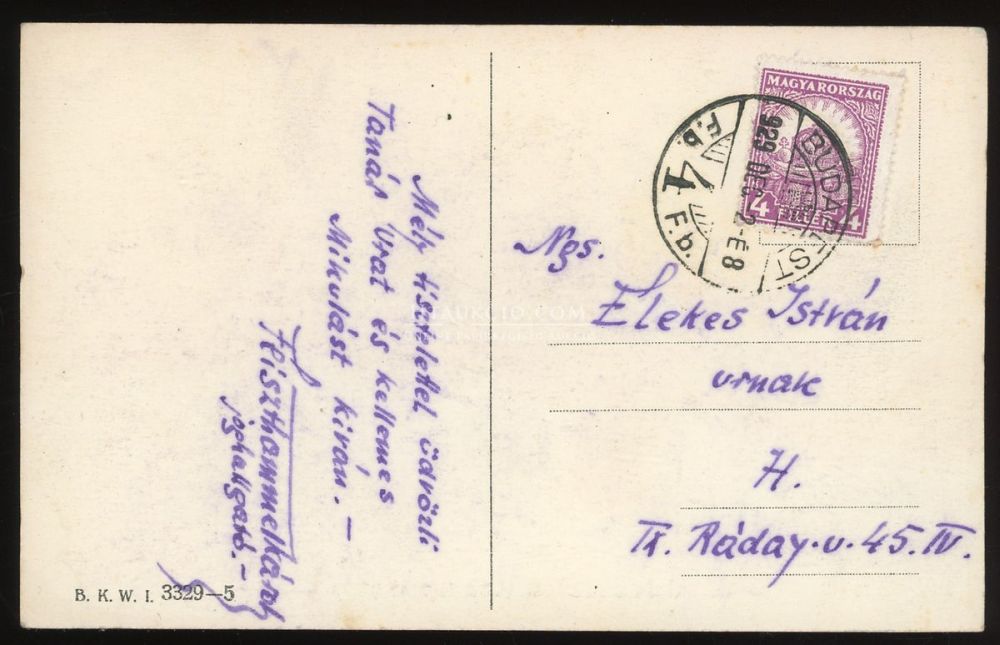 Mély tisztelettel üdvözli
Tanár Urat és kellemes
Mikulást kíván. —
joghallgató. —
B. K. W. I. 3329—5
MAGYARORSZÁG
4 FILLÉR 4
BUDAPEST
929 DEC 2-E8
4
Ngs.
Elekes István
urnak
H.
IX. Ráday. u. 45. IV.